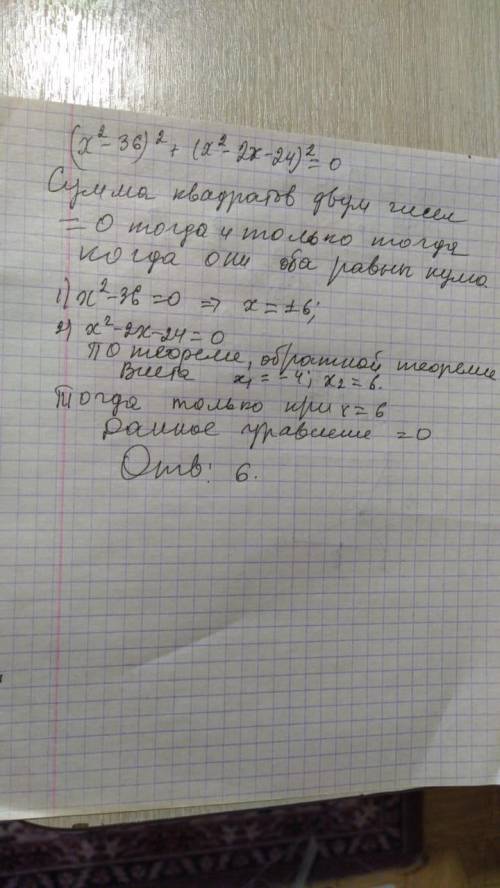 (x²-36)² + (x²-2x-24)²=0
Сумма квадратов двум чисел
=0 тогда и только тогда
когда они оба равны нулю
1) x²-36=0 ⇒ x=±6;
2) x²-2x-24=0
по теореме, обратной теореме
Виета x₁=-4; x₂=6.
Тогда только при x=6
данное уравнение =0
Отв: 6.